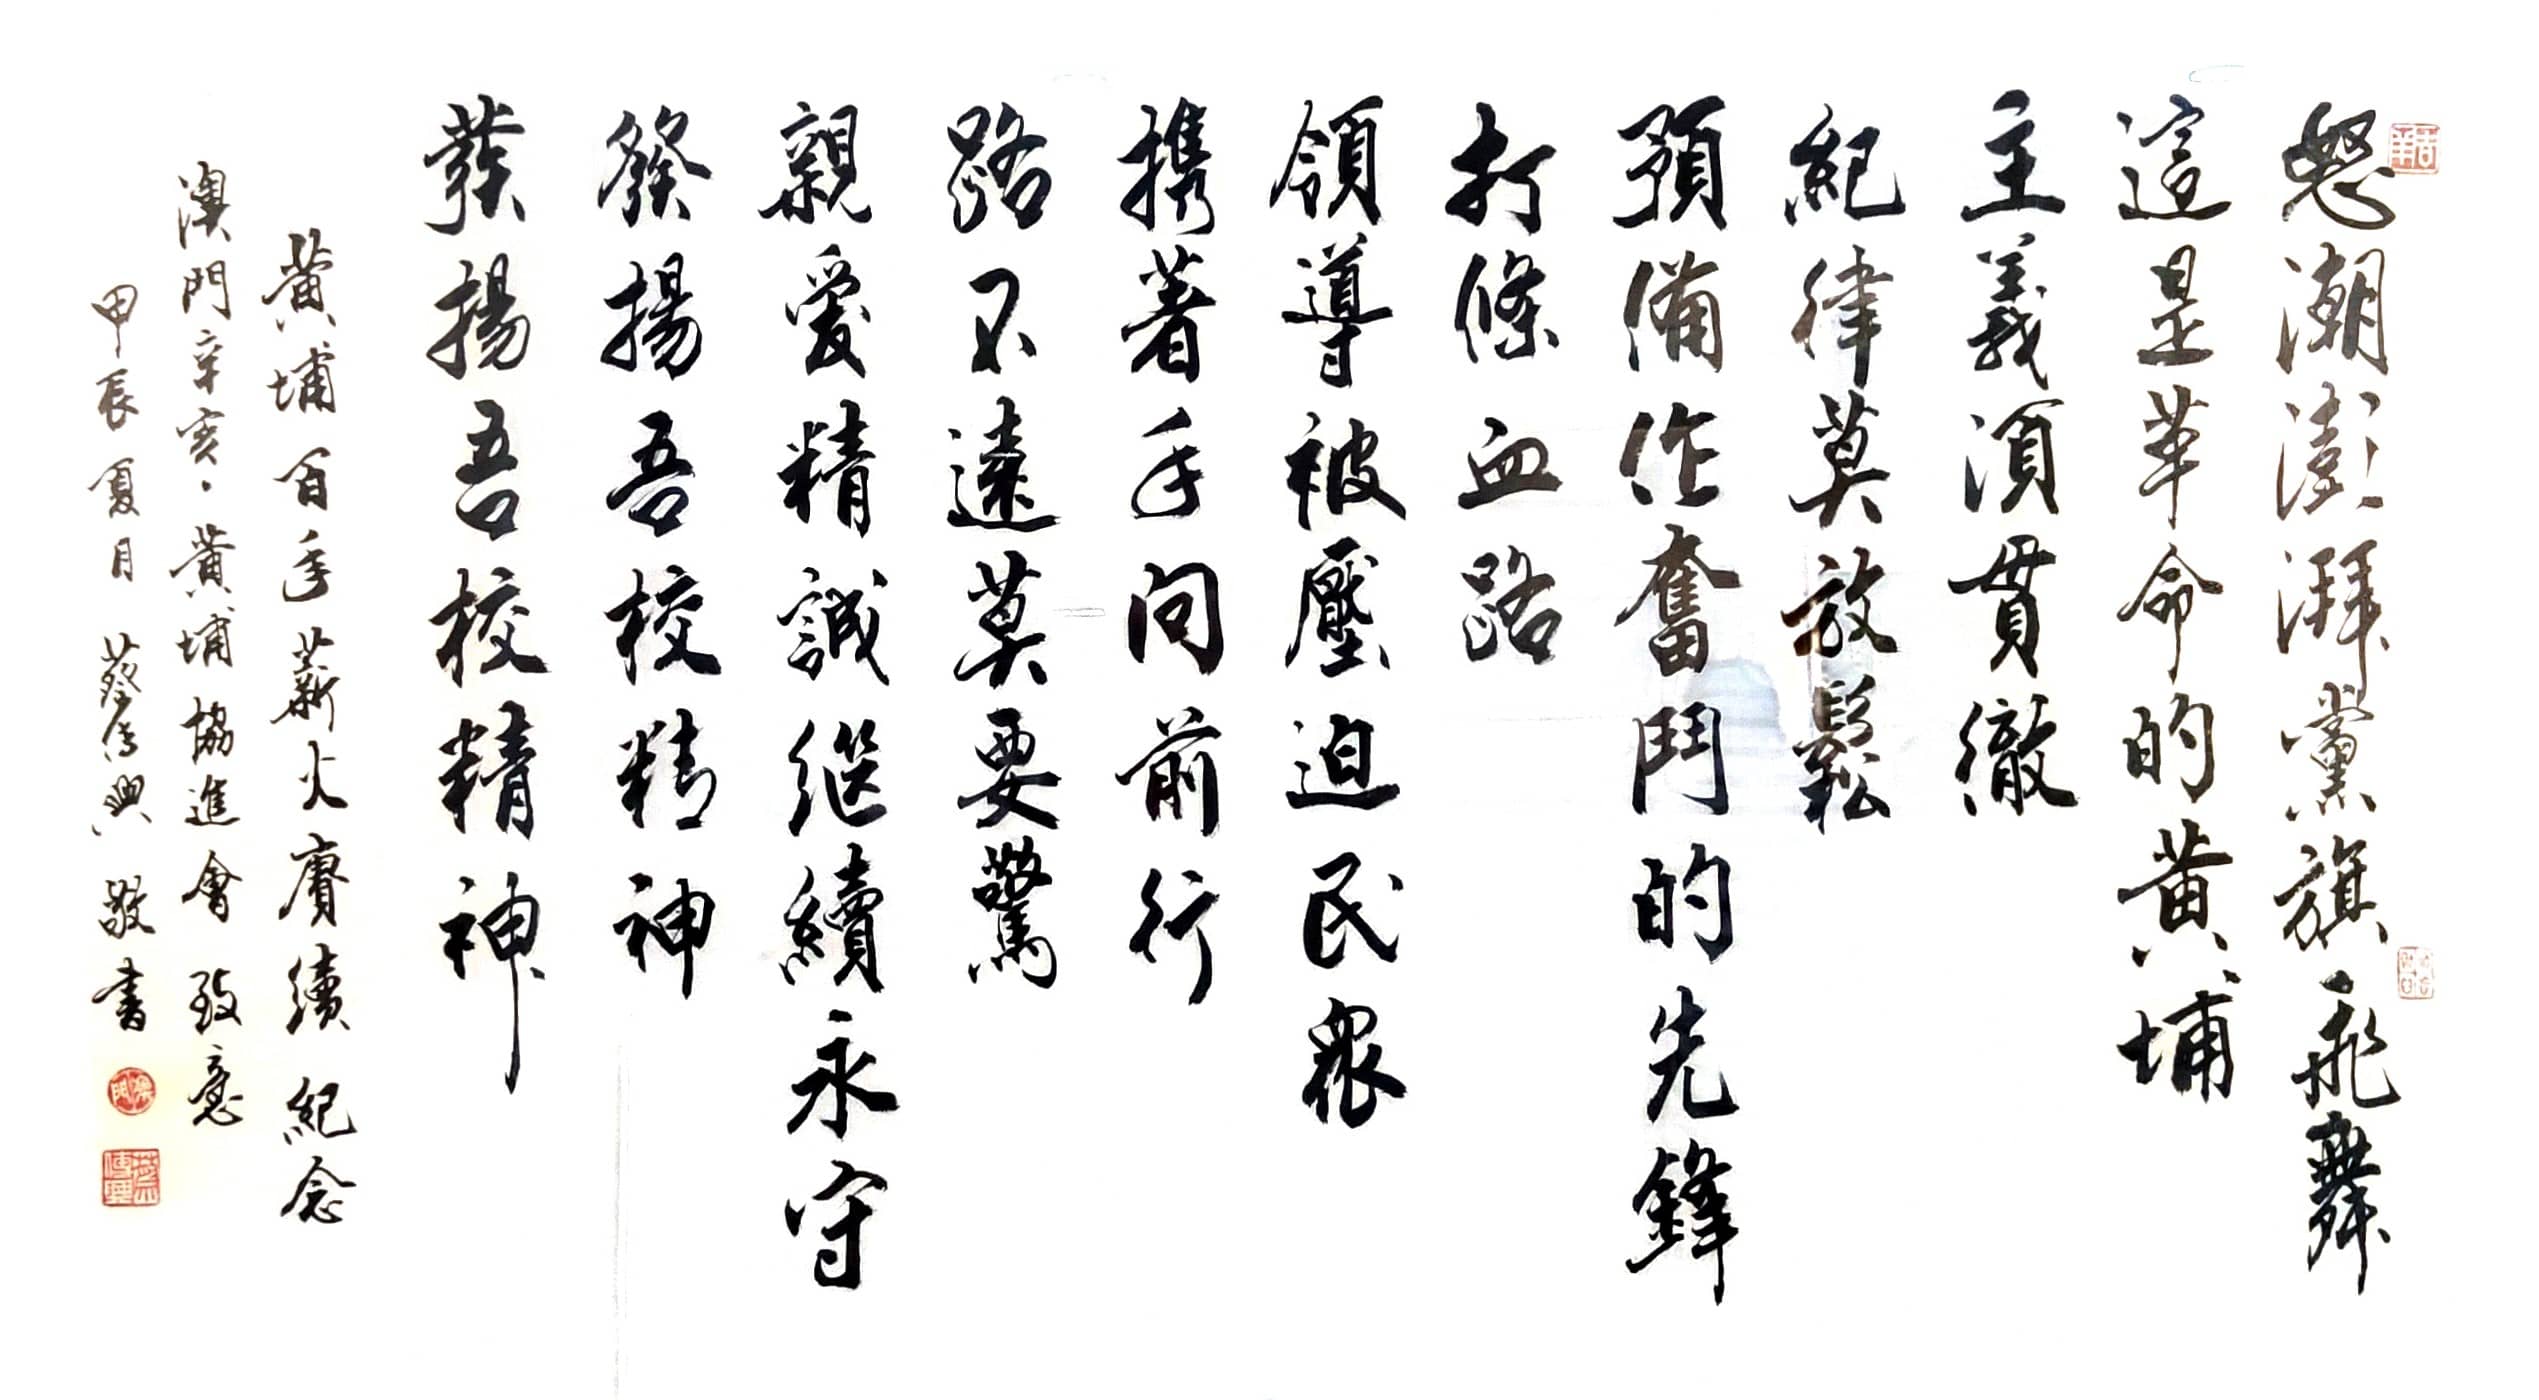 怒潮澎湃黨旗飛舞
這是革命的黃埔
主義須貫徹
紀律莫放鬆
預備作奮鬥的先鋒
打條血路
領導被壓迫民衆
携着手向前行
路不遠莫要驚
親愛精誠継續永守
發揚吾校精神
發揚吾校精神
黃埔百年薪火賡續紀念
澳門辛亥·黃埔協進會致意
甲辰夏月蔡傳興敬書
蔡傳興